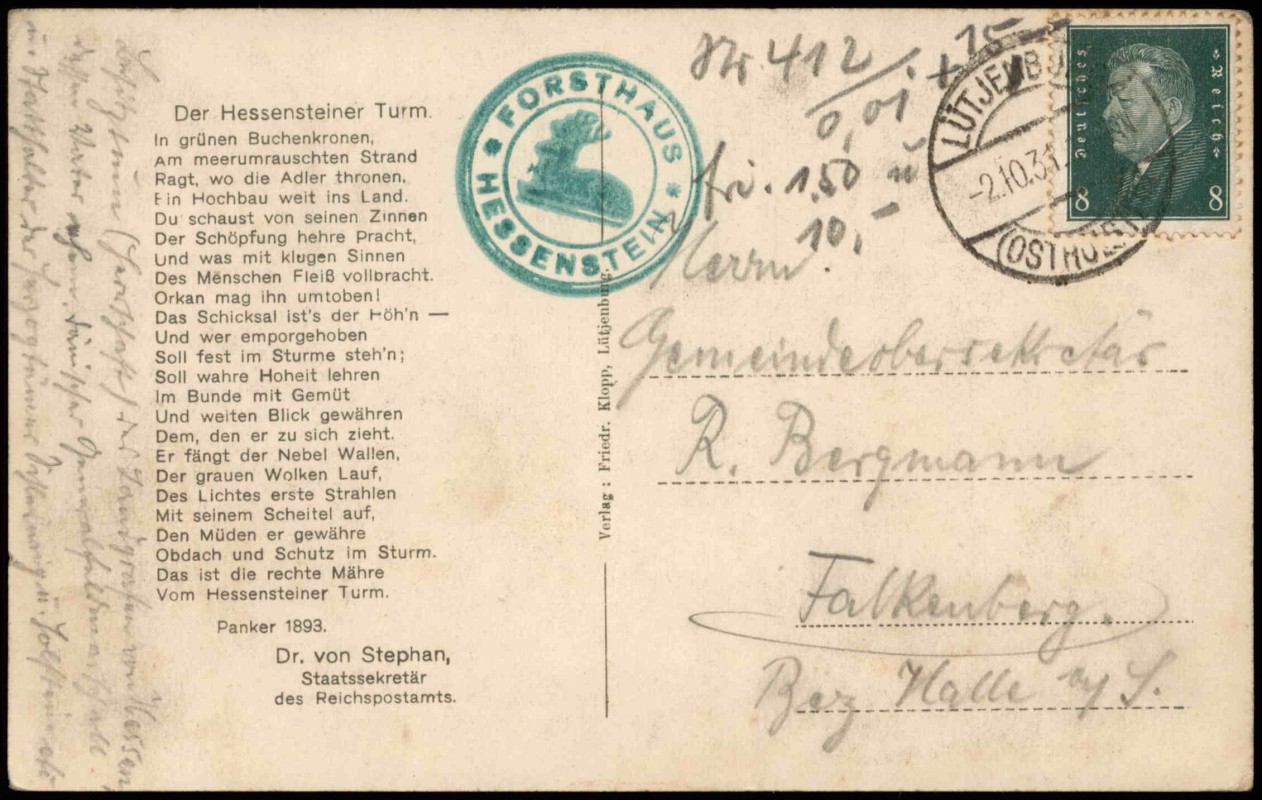 Der Hessensteiner Turm.
In grünen Buchenkronen,
Am meerumrauschten Strand
Ragt, wo die Adler thronen,
Ein Hochbau weit ins Land.
Du schaust von seinen Zinnen
Der Schöpfung hehre Pracht,
Und was mit klugen Sinnen
Des Menschen Fleiß vollbracht.
Orkan mag ihn umtoben!
Das Schicksal ist's der Höh'n —
Und wer emporgehoben
Soll fest im Sturme steh'n;
Soll wahre Hoheit lehren
Im Bunde mit Gemüt
Und weiten Blick gewähren
Dem, den er zu sich zieht.
Er fängt der Nebel Wallen,
Der grauen Wolken Lauf,
Des Lichtes erste Strahlen
Mit seinem Scheitel auf,
Den Müden er gewähre
Obdach und Schutz im Sturm.
Das ist die rechte Mähre
Vom Hessensteiner Turm.
Panker 1893.
Dr. von Stephan,
Staatssekretär
des Reichspostamts.
(Herrschaft) des Landgrafen von Hessen,
dessen Vater dänischer Generalfeldmarschall
und Statthalter der Herzogtümer
FORSTHAUS
HESSENSTEIN
Verlag: Friedr. Klopp, Lütjenburg.
Nr 412
0,01
+ 15
1.50
10,-
LÜTJENBU
-2.10.31
(OSTHOLST
Deutsches Reich
8 8
Herrn
Gemeindeobersekretär
R. Bergmann
Falkenberg.
Bez Halle a/S.